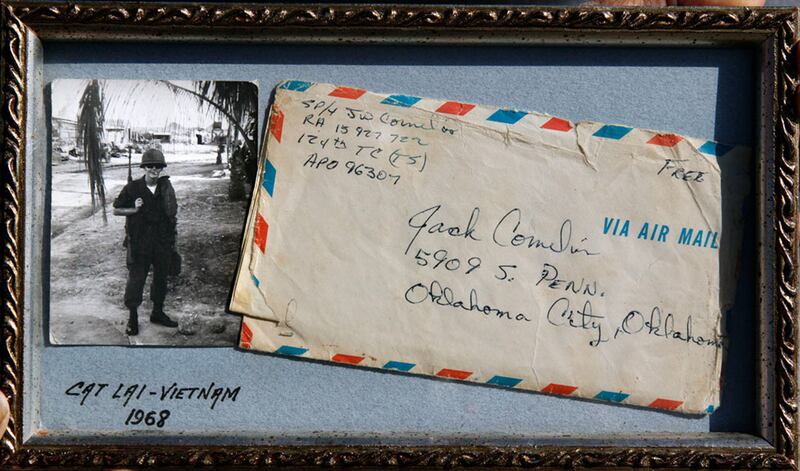 SP/4 JW Cornelius
RA 15 927 722
124th TC (TS)
APO 96307
FREE
VIA AIR MAIL
Jack Cornelius
5909 S. PENN.
Oklahoma City, Oklahom
CAT LAI - VIETNAM
1968